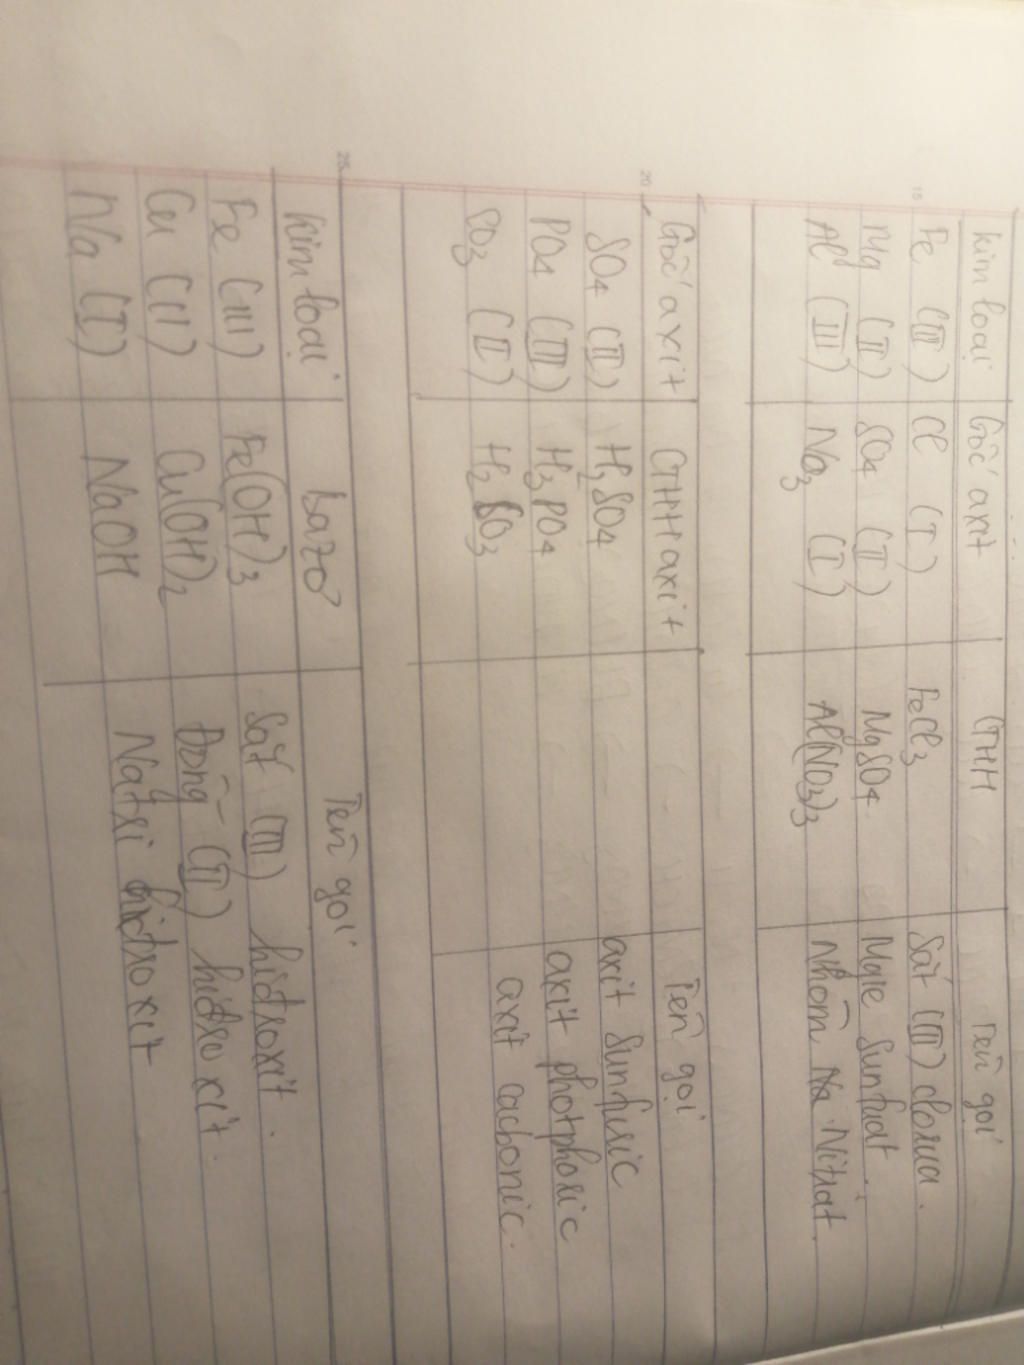 15
Kim loại Gốc axit CTHH Tên gọi
Fe (III) Cl (I) FeCl3 Sắt (III) clorua.
Mg (II) SO4 (II) MgSO4 Mgie Sunfuat.
Al (III) No3 (I) Al(NO3)3 Nhôm Nitrat.
20
Gốc axit CTHH axit Tên gọi
SO4 (II) H2SO4 axit Sunfuric
PO4 (III) H3PO4 axit photphoric
CO3 (II) H2CO3 axit cacbonic.
25
Kim loại bazơ Tên gọi
Fe (III) Fe(OH)3 Sắt (III) hidroxit.
Cu (II) Cu(OH)2 Đồng (II) hidroxit.
Na (I) NaOH Natri hidroxit